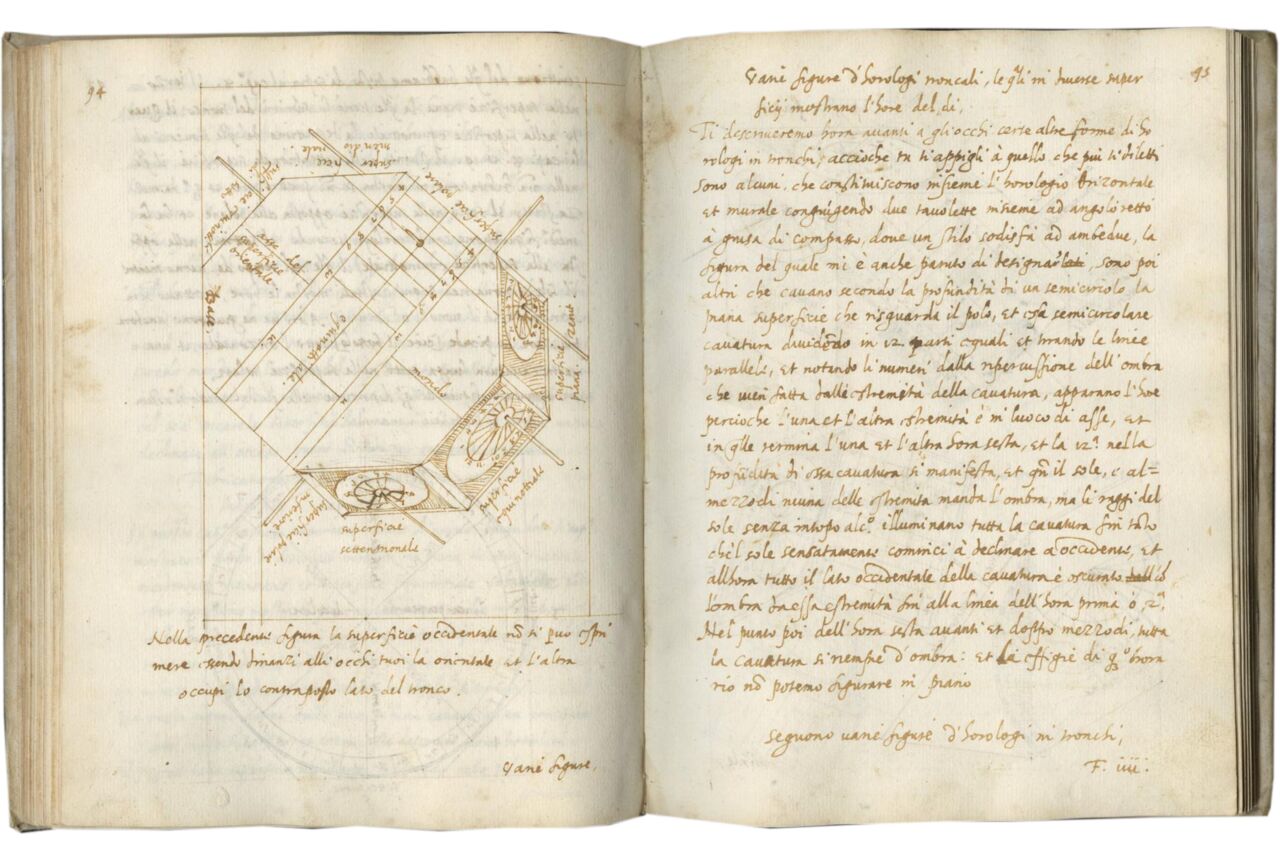 94
superficie
meridio
nale
superficie polare
Base
asse
del
mondo
equinottiale
superficie
equinottiale
superficie
settentrionale
Nella precedente figura la superficie occidentale nõ si puo espri
mere essendo dinanzi alli occhi tuoi la orientale et l'altra
occupi lo contraposto lato del tronco.
Varie figure,
95
Varie figure d'horologi troncali, le q̃li in diverse super
ficij mostrano l'hore del di,
Ti descriveremo hora avanti a gli occhi certe altre forme di ho
rologi in tronchi, accioche tu ti appigli à quello che più ti diletti
sono alcuni, che constituiscono insieme l'horologio Orizontale
et murale congiũgendo due tavolette insieme ad angolo retto
à guisa di compasso, dove un stilo sodisfà ad ambedue, la
figura del quale mi è anche paruto di designar, sono poi
altri che cavano secondo la profindità di un semicircolo la
piana superficie che risguarda il polo, et essa semicircolare
cavatura dividẽdo in 12. parti equali et tirando le linee
parallele, et notando li numeri dalla ripercussione dell'ombra
che vien fatta dalle estremità della cavatura, apparano l'hore
percioche l'una et l'altra estremità è in luoco di asse, et
in q̃lle termina l'una et l'altra hora sesta, et la 12ª nella
profũdità di essa cavatura si manifesta, et qñ il sole, è al=
mezzodi niuna delle estremità manda l'ombra, ma li raggi del
sole senza intopo alcº illuminano tutta la cavatura fin tãto
che'l sole sensatamente cominci à declinare a occidente, et
allhora tutto il lato occidentale della cavatura è oscurato
l'ombra da essa estremità fin alla linea dell'hora prima ò, 2ª.
Nel punto poi dell'hora sesta avanti et dopo mezzodi, tutta
la cavatura si riempie d'ombra: et la effigie di q̃º hora
rio nõ potemo figurare in piano
Seguono varie figure d'horologi in tronchi,
F. iiii.